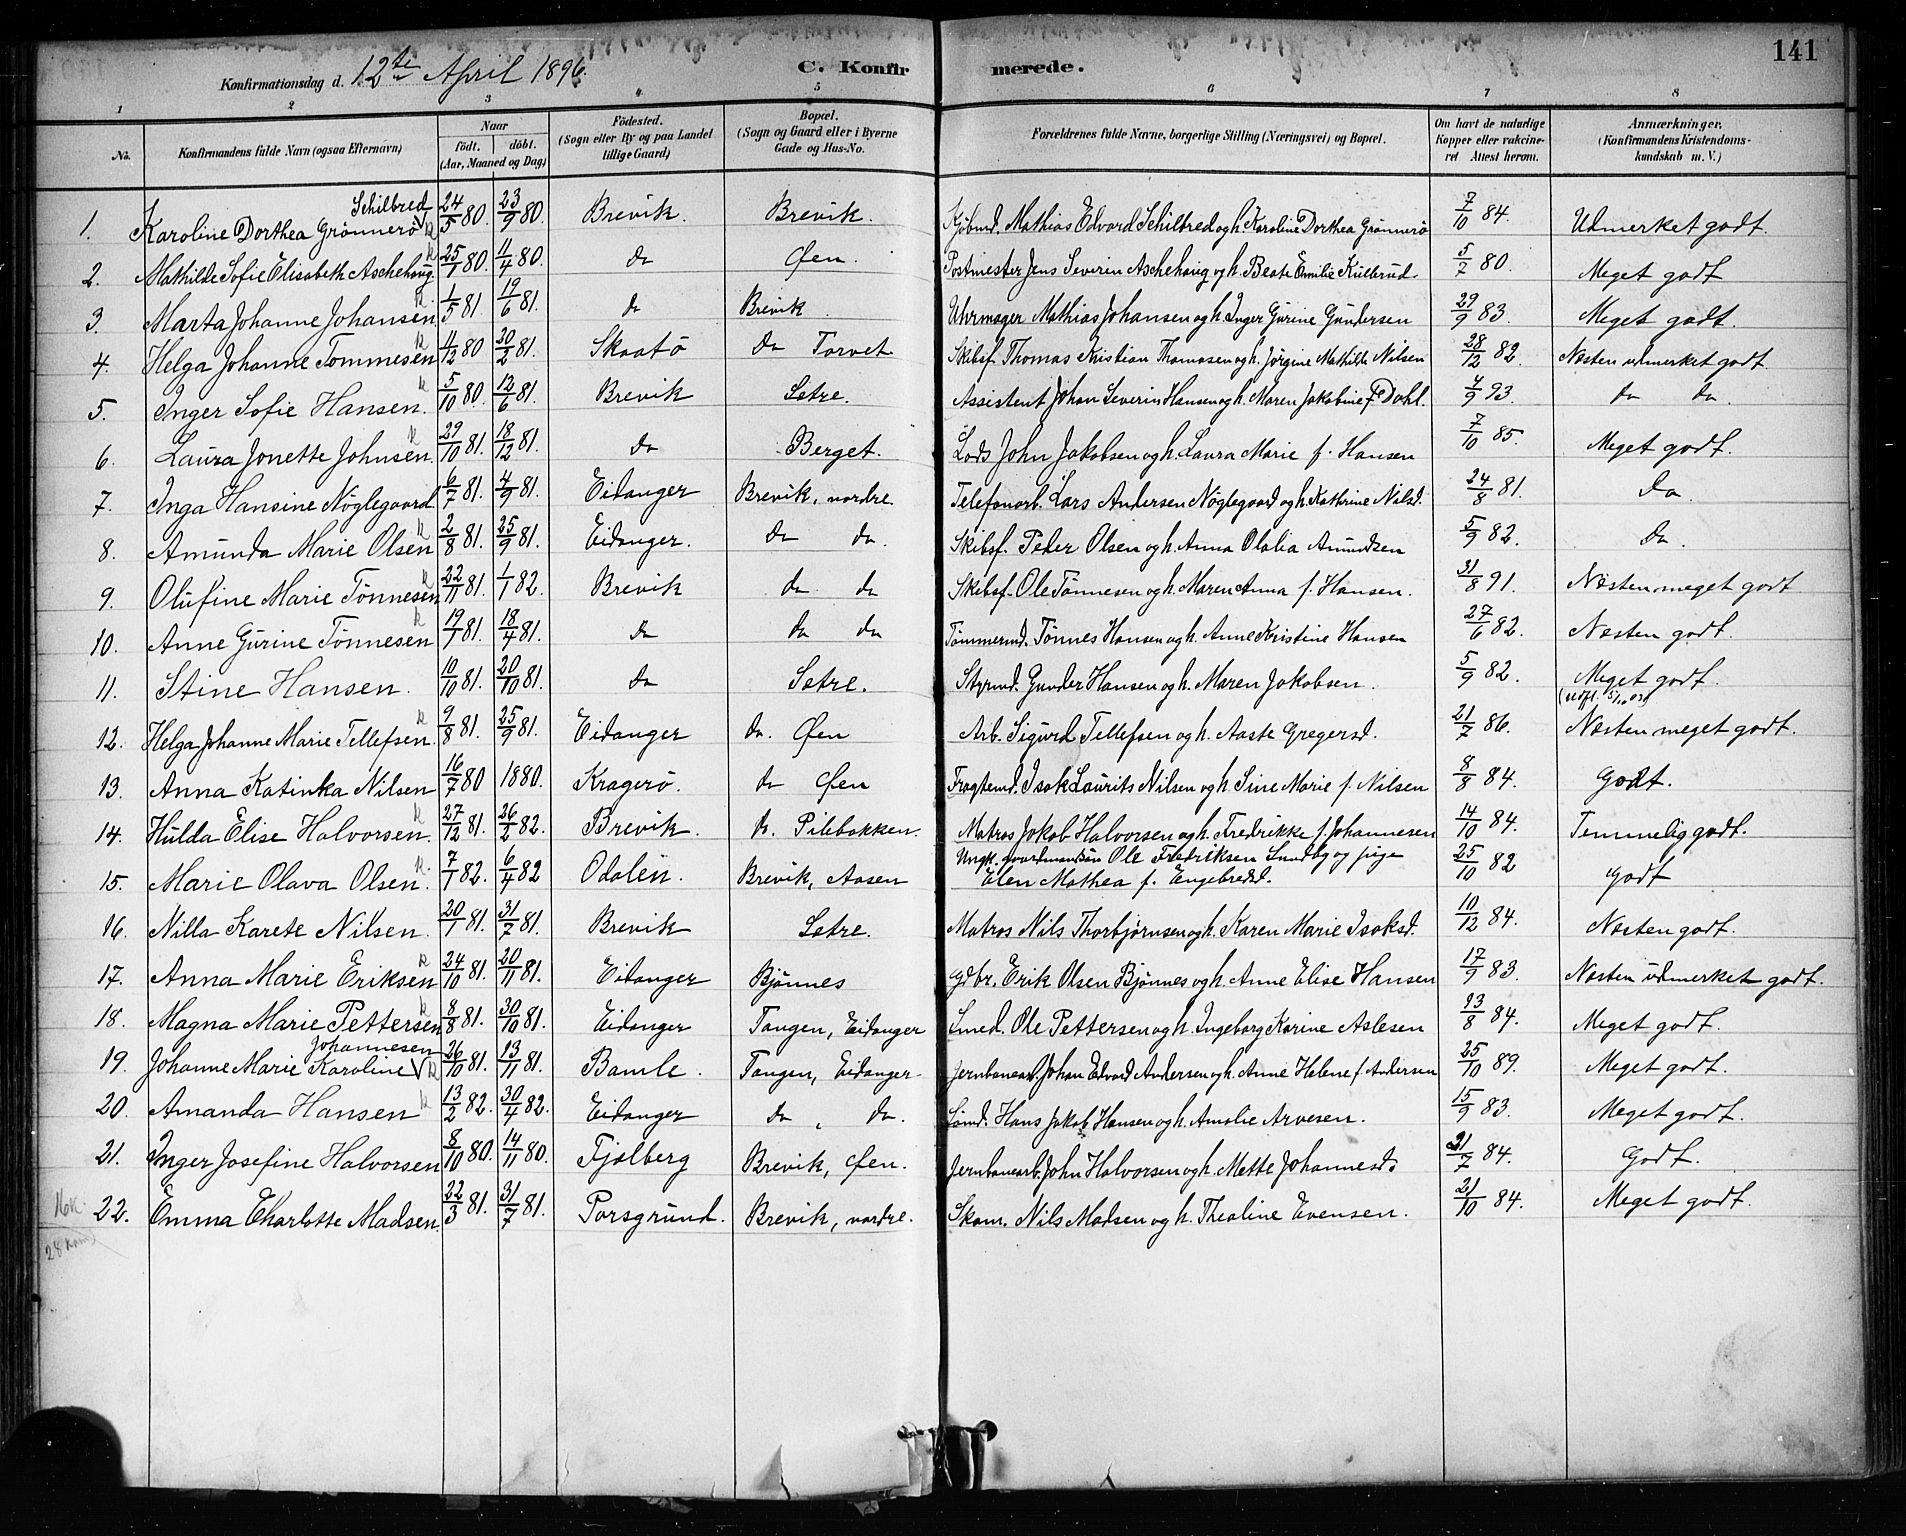 141
Konfirmationsdag d. 12te April 1896. C. Konfir merede.
1 2 3 4 5 6 7 8
No. Konfirmandens fulde Navn (ogsaa Efternavn) Naar født. døbt. (Aar, Maaned og Dag) Fødested. (Sogn eller By og paa Landet tillige Gaard) Bopæl. (Sogn og Gaard eller i Byerne Gade og Hus-No. Forældrenes fulde Navne, borgerlige Stilling (Næringsvei) og Bopæl. Om havt de naturlige Kopper eller vakcineret Attest herom. Anmærkninger. (Konfirmandens Kristendomskundskab m. V.)
1. Karoline Dorthea Grønnerø Schilbred 24/5 80. 23/9 80. Brevik. Brevik. Kjøbmd. Mathias Edvard Schilbred og h. Karoline Dorthea Grønnerø 7/10 84. Udmerket godt.
2. Mathilde Sofie Elisabeth Aschehoug 25/1 80. 11/4 80. do Øen. Postmester Jens Severin Aschehoug og h. Beate Emilie Kullerud 5/7 80. Meget godt
3. Marta Johanne Johansen 1/5 81. 19/6 81. do Brevik. Uhrmager Mathias Johansen og h. Inger Gurine Gundersen 29/9 83. Meget godt.
4. Helga Johanne Tommesen 11/12 80 20/2 81. Skaatö do Torvet Skibsf. Thomas Kristian Thomasen og h. Jörgine Mathilde Nilsen 28/12 82. Næsten udmerket godt
5. Inger Sofie Hansen. 5/10 80. 12/6 81. Brevik Setre. Assistent Johan Severin Hansen og h. Maren Jakobine f. Dahl. 4/9 93. do do.
6. Laura Jonette Johnsen. 29/10 81. 18/12 81. do Berget. Lods John Jakobsen og h. Laura Marie f. Hansen 7/10 85. Meget godt.
7. Inga Hansine Nøglegaard 6/7 81. 4/9 81. Eidanger Brevik, nordre. Telefonarb. Lars Andersen Nøglegaard og h. Kathrine Nilsd. 24/8 81. Do.
8. Amunda Marie Olsen 2/8 81. 25/9 81. Eidanger. do do. Skibsf. Peder Olsen og h. Anna Olalia Amundsen 5/9 82. Do.
9. Olufine Marie Tønnesen 22/11 81. 1/1 82. Brevik do do Skibsf. Ole Tønnesen og h. Maren Anna f. Hansen. 31/8 91. Næsten meget godt
10. Anne Gurine Tønnesen 19/1 81. 18/4 81. do do do Tømmermd. Tønnes Hansen og h. Anne Kristine Hansen 27/6 82. Næsten godt.
11. Stine Hansen. 10/10 81. 20/10 81. do Setre. Styrmd. Gunder Hansen og h. Maren Jakobsen. 5/9 82. Meget godt.
12. Helga Johanne Marie Tellefsen. 9/8 81. 25/9 81. Eidanger do. Øen Arb. Sigurd Tellefsen og h. Aaste Gregersd. 21/7 86. Næsten meget godt.
13. Anna Katinka Nilsen 16/7 80 1880. Kragerö. do Øen Fragtemd. Isak Laurits Nilsen og h. Sine Marie f. Nilsen 8/8 84. Godt.
14. Hulda Elise Halvorsen. 27/12 81. 26/2 82. Brevik. do. Pilebakken. Matros Jakob Halvorsen og h. Fredrikke f. Johannesen 14/10 84. Temmelig godt.
15. Marie Olava Olsen. 7/1 82. 6/4 82 Odalen. Brevik, Aasen Ungk. Ole Fredriksen Sundby og pige Elen Mathea f. Engebredsd. 25/10 82 godt
16. Nilla Karete Nilsen. 20/1 81. 31/7 81. Brevik Setre. Matros Nils Thorbjørnsen og h. Karen Marie Isaksd. 10/12 84. Næsten godt.
17. Anna Marie Eriksen 24/10 81. 20/11 81. Eidanger Bjønnes Gdbr. Erik Olsen Bjønnes og h. Anne Elise Hansen 17/9 83. Næsten udmerket godt.
18. Magna Marie Pettersen 8/8 81. 30/10 81. Eidanger Tangen, Eidanger Smed. Ole Pettersen og h. Ingeborg Karine Aslesen 23/8 84. Meget godt.
19. Johanne Marie Karoline Johannesen 26/10 81. 13/11 81. Bamle. Tangen, Eidanger Jernbanearb. Johan Edvard Andersen og h. Anne Helene f. Andersen 25/10 89. Meget godt.
20. Amanda Hansen 13/2 82. 30/4 82. Eidanger do , do. Sømd. Hans Jakob Hansen og h. Amalie Arvesen. 15/9 83. Meget godt.
21. Inger Josefine Halvorsen 8/10 80. 14/11 80. Fjølberg Brevik, Øen. Jernbanearb. John Halvorsen og h. Mette Johannesd. 21/7 84. Godt.
22. Emma Charlotte Madsen. 22/3 81. 31/7 81. Porsgrund. Brevik, nordre. Skom. Nils Madsen og h. Thealine Evensen. 21/10 84. Meget godt.
16 K.
28 Kom